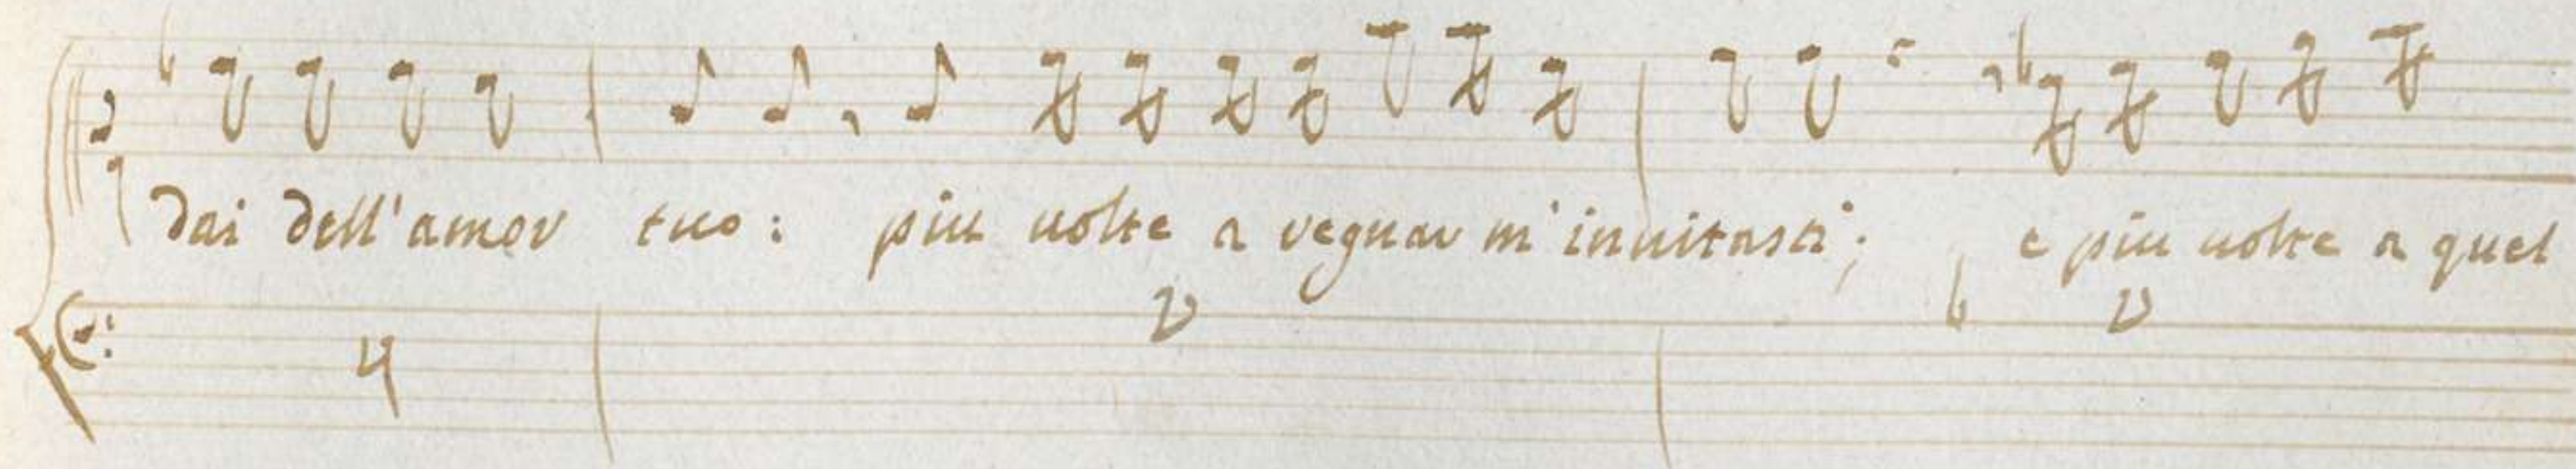 dai dell'amor tuo: più uolte a regnar m'inuitasti; e più uolte a quel